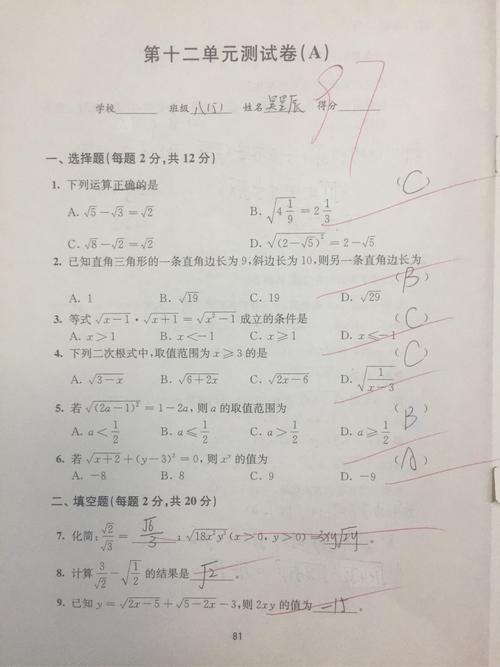 第十二单元测试卷(A)
学校 班级 八(5) 姓名 吴昊辰 得分 87
一、选择题(每题2分,共12分)
1. 下列运算正确的是 (C)
A. √5-√3=√2 B. √(4 1/9)=2 1/3
C. √8-√2=√2 D. √((2-√5)²)=2-√5
2. 已知直角三角形的一条直角边长为9,斜边长为10,则另一条直角边长为 (B)
A. 1 B. √19 C. 19 D. √29
3. 等式√(x-1)·√(x+1)=√(x²-1)成立的条件是 (C)
A. x>1 B. x<-1 C. x≥1 D. x≤-1
4. 下列二次根式中,取值范围为x≥3的是 (C)
A. √(3-x) B. √(6+2x) C. √(2x-6) D. √(1/(x-3))
5. 若√((2a-1)²)=1-2a,则a的取值范围为 (B)
A. a<1/2 B. a≤1/2 C. a>1/2 D. a≥1/2
6. 若√(x+2)+(y-3)²=0,则xʸ的值为 (A)
A. -8 B. 8 C. 9 D. -9
二、填空题(每题2分,共20分)
7. 化简:√2/√3= √6/3 ;√(18x²y³)(x>0,y>0)= 3xy√2y 。
8. 计算3/√2-√(1/2)的结果是 √2 。
9. 已知y=√(2x-5)+√(5-2x)-3,则2xy的值为 -15 。
81